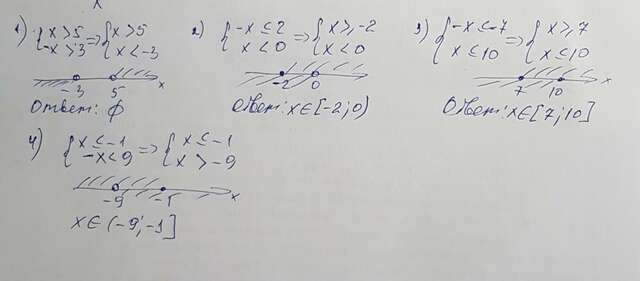 1) { x > 5 => { x > 5
{ -x > 3 { x < -3
-3 5 x
Ответ: ∅
2) { -x ≤ 2 => { x ≥ -2
{ x < 0 { x < 0
-2 0
Ответ: x ∈ [-2; 0)
3) { -x ≤ -7 => { x ≥ 7
{ x ≤ 10 { x ≤ 10
7 10 x
Ответ: x ∈ [7; 10]
4) { x ≤ -1 => { x ≤ -1
{ -x < 9 { x > -9
-9 -1 x
x ∈ (-9; -1]